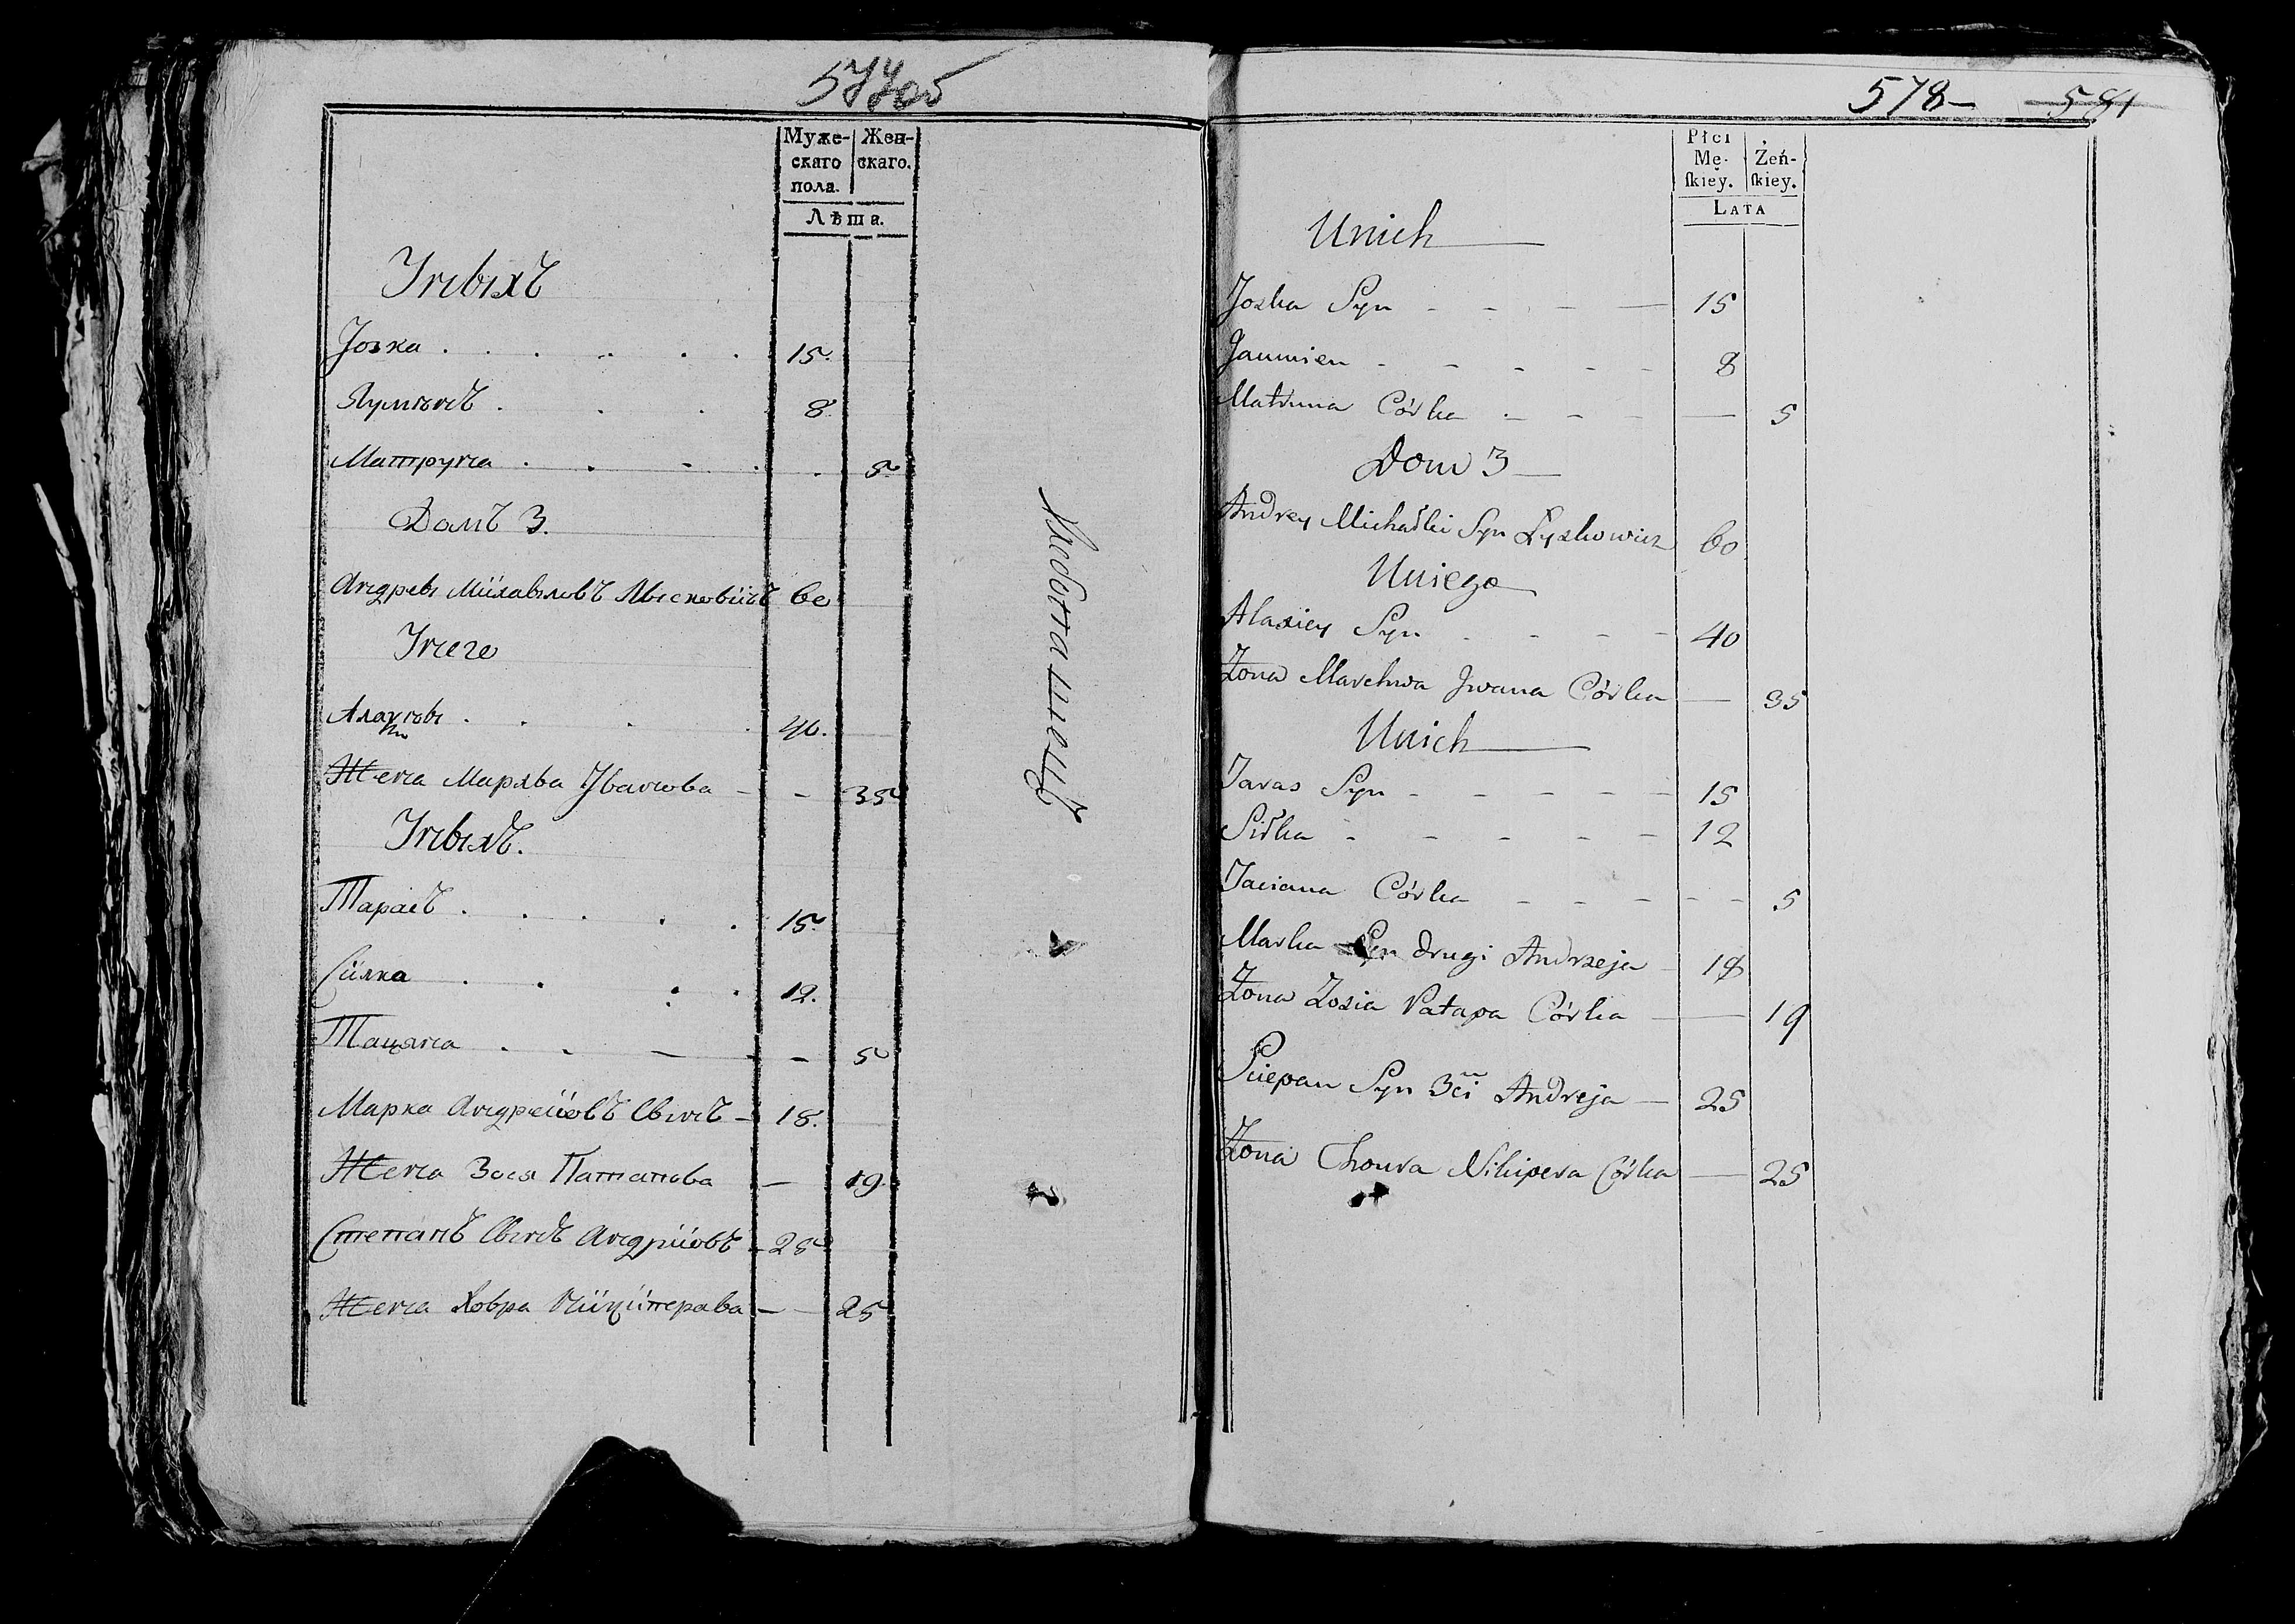 577об
Муже- Жен-
скаго скаго.
пола.
Лѣта.
Унихъ
Іозка . . . . . . 15.
Яумѣнъ . . . 8.
Матруна . . . . . 5
Домъ 3.
Андрей Михайловъ Лысковичъ 60
Унего
Алаксѣй . . . 40.
Жена Мархва Іванова - - 35
Унихъ.
Тарасъ . . . . . 15.
Силка . . . . 12.
Тацяна . . — — 5
Марка Андреіовъ Сынъ - 18.
Жена Зося Патапова — 19.
Степанъ Сынъ Андріовъ - 25
Жена Ховра Никиперава — — 25
578— 581
Płci
Mę- Żeń-
ſkiey. ſkiey.
LATA
Unich
Jozka Syn - - - — 15
Jaumien - - - - - 8
Matruna Córka - - - — 5
Dom 3
Andrey Michałki Syn Łyskowicz 60
Uniego
Alaxiey Syn - - - - 40
Żona Marchwa Jwana Córka — 35
Unich
Taras Syn - - - - - 15
Siłka - - - - - 12
Taciana Córka - - - - - 5
Marka Syn drugi Andrzeja - 18
Żona Zosia Patapa Córka — 19
Sciepan Syn 3ci Andreja — 25
Żona Chowra Nikipera Córka — 25